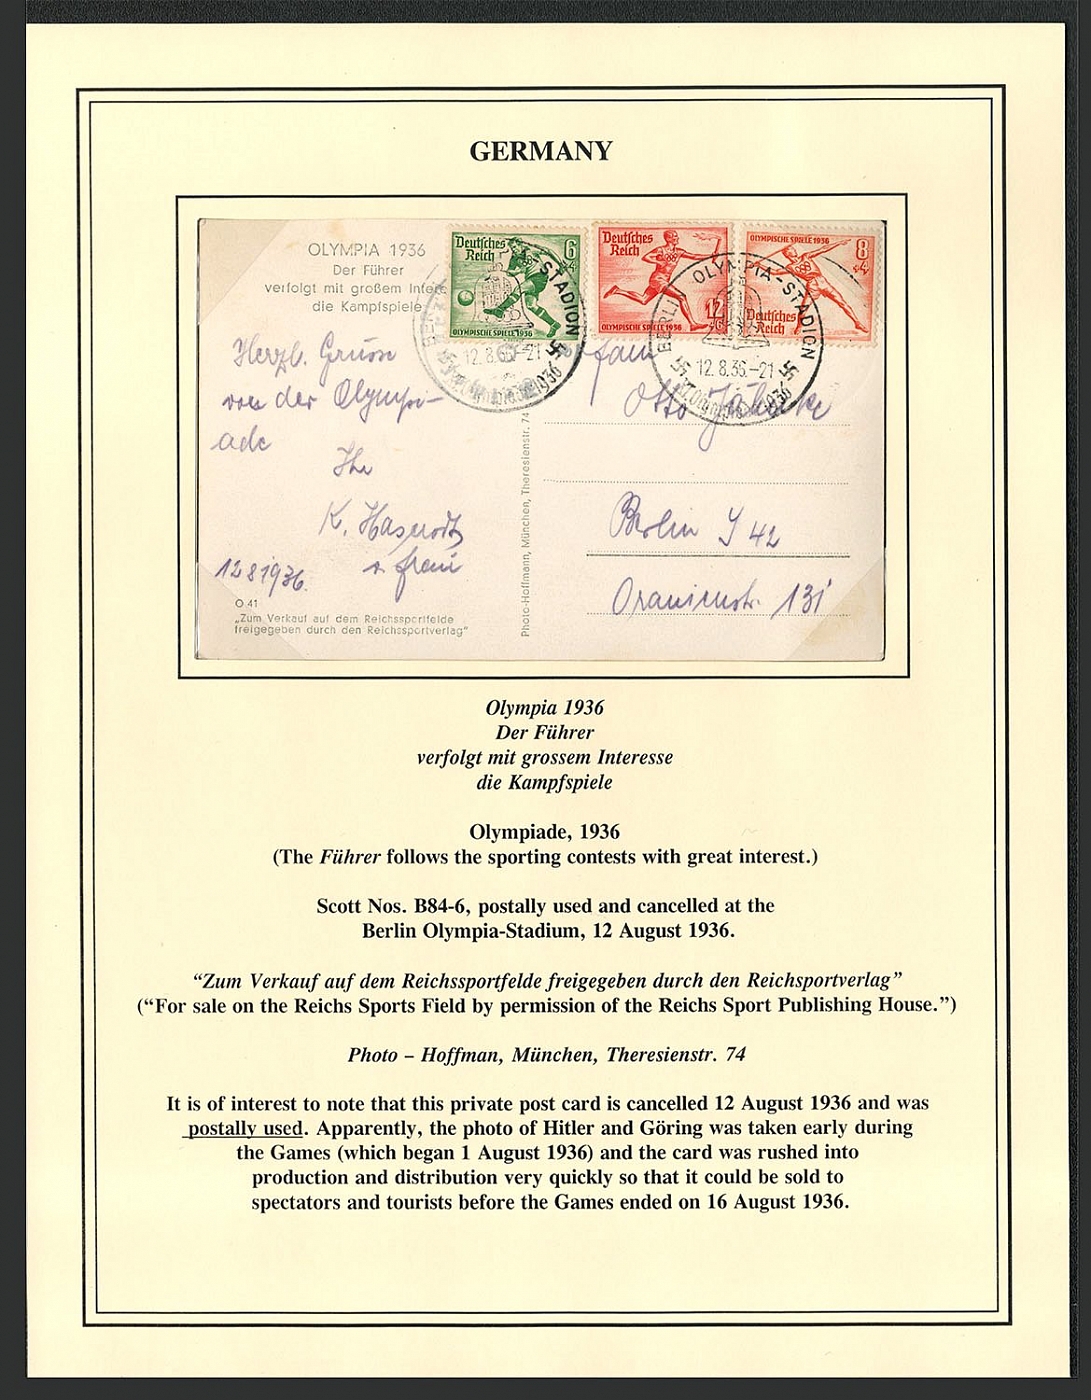 GERMANY
OLYMPIA 1936
Der Führer
verfolgt mit großem Intere
die Kampfspiele
Deutsches
Reich
6
+4
OLYMPISCHE SPIELE 1936
Deutsches
Reich
12
+6
OLYMPISCHE SPIELE 1936
OLYMPISCHE SPIELE 1936
8
+4
Deutsches
Reich
STADION
12.8.36.-21
1936
BERLIN OLYMPIA-STADION
12.8.36.-21
1936
Herzl. Grüße
von der Olympi-
ade
Ihr
K.
u. Frau
12 8 1936.
O 41
„Zum Verkauf auf dem Reichssportfelde
freigegeben durch den Reichssportverlag“
Photo-Hoffmann, München, Theresienstr. 74
Fam
Otto
Berlin S 42
Oranienstr. 131
Olympia 1936
Der Führer
verfolgt mit grossem Interesse
die Kampfspiele
Olympiade, 1936
(The Führer follows the sporting contests with great interest.)
Scott Nos. B84-6, postally used and cancelled at the
Berlin Olympia-Stadium, 12 August 1936.
“Zum Verkauf auf dem Reichssportfelde freigegeben durch den Reichsportverlag”
(“For sale on the Reichs Sports Field by permission of the Reichs Sport Publishing House.”)
Photo – Hoffman, München, Theresienstr. 74
It is of interest to note that this private post card is cancelled 12 August 1936 and was
postally used. Apparently, the photo of Hitler and Göring was taken early during
the Games (which began 1 August 1936) and the card was rushed into
production and distribution very quickly so that it could be sold to
spectators and tourists before the Games ended on 16 August 1936.